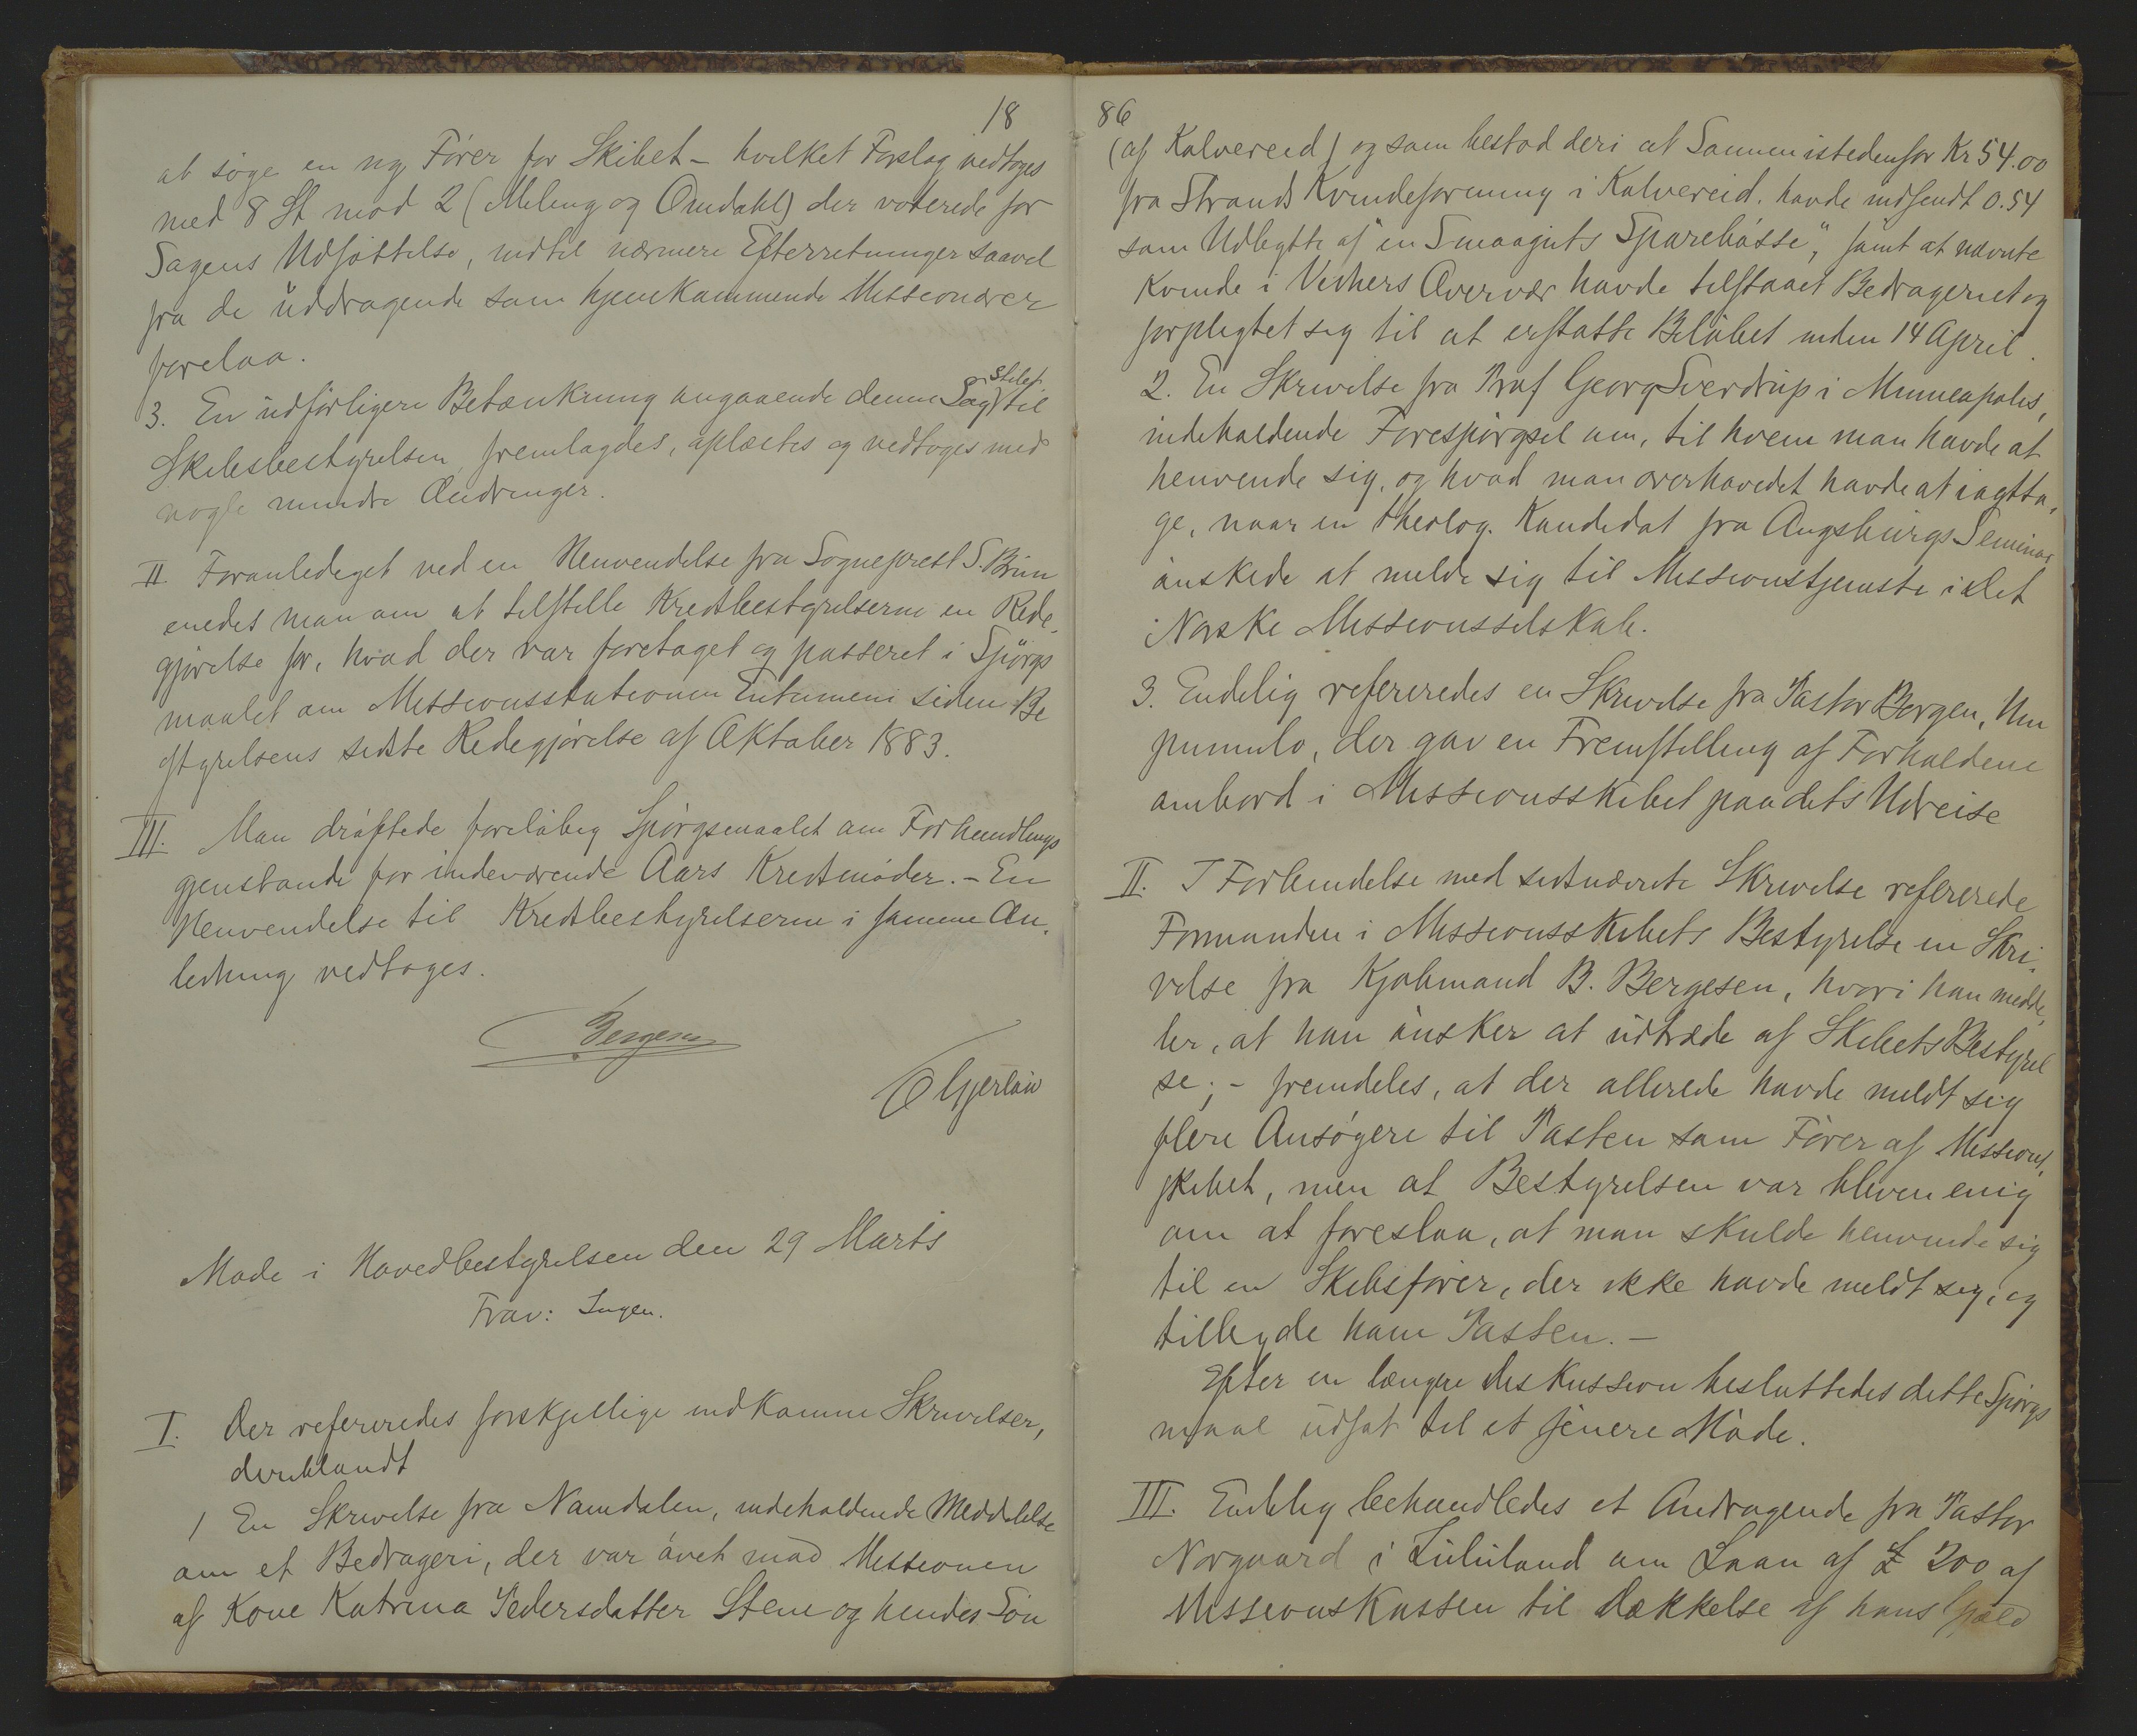 18
at søge en ny Fører for Skibet - hvilket Forslag vedtoges
med 8 St mod 2 (Meling og Omdahl) der voterede for
Sagens Udsættelse, indtil nærmere Efterretninger saavel
fra de uddragende som hjemkommende Missionærer
forelaa.
3. En udførligere Betænkning angaaende denne Sag stilet til
Skibsbestyrelsen, fremlagdes, oplæstes og vedtoges med
nogle mindre Ændringer.
II. Foranlediget ved en Henvendelse fra Sogneprest S. Brun
enedes man om at tilstille Kredsbestyrelserne en Rede-
gjørelse for, hvad der var foretaget og passeret i Spørgs
maalet om Missionsstationen Entumeni siden Be
styrelsens sidste Redegjørelse af Oktober 1883.
III. Man drøftede foreløbig Spørgsmaalet om Forhandlings
gjenstande for indeværende Aars Kredsmøder. - En
Henvendelse til Kredsbestyrelserne i samme An-
ledning vedtoges.
Borgen
O Gjerløw
Møde i Hovedbestyrelsen den 29 Marts
Frav: Ingen.
I. Der refereredes forskjellige indkomne Skrivelser,
deriblandt
1 En Skrivelse fra Namdalen, indeholdende Meddelelse
om et Bedrageri, der var øvet mod Missionen
af Kone Katrina Pedersdatter Stene og hendes Søn
86
(af Kalvereid) og som bestod deri at Sønnen istedenfor Kr 54.00
fra Strands Kvindeforening i Kalvereid, havde indsendt 0.54
som Udbytte af "en Smaaguts Sparebøsse", samt at nævnte
Kvinde i Vidners Overvær havde tilstaaet Bedrageriet og
forpligtet sig til at erstatte Beløbet inden 14 April.
2. En Skrivelse fra Prof Georg Sverdrup i Minneapolis,
indeholdende Forespørgsel om, til hvem man havde at
henvende sig, og hvad man overhovedet havde at iagtta-
ge, naar en theolog. Kandidat fra Augsburgs Seminar
ønskede at melde sig til Missionstjeneste i det
Norske Missionsselskab.
3. Endelig refereredes en Skrivelse fra Pastor Borgen, Um
pumulo, der gav en Fremstilling af Forholdene
ombord i Missionsskibet paa dets Udreise
II. I Forbindelse med sidstnævnte Skrivelse refererede
Formanden i Missionsskibets Bestyrelse en Skri-
velse fra Kjøbmand B. Bergesen, hvori han medde-
ler, at han ønsker at udtræde af Skibets Bestyrel
se; - fremdeles, at der allerede havde meldt sig
flere Ansøgere til Posten som Fører af Missions-
skibet, men at Bestyrelsen var bleven enig
om at foreslaa, at man skulde henvende sig
til en Skibsfører, der ikke havde meldt sig, og
tilbyde ham Posten. -
Efter en længre Diskussion besluttedes dette Spørgs
maal udsat til et senere Møde.
III. Endelig behandledes et Andragende fra Pastor
Norgaard i Zululand om Laan af £ 200 af
Missionskassen til Dækkelse af hans Gjæld